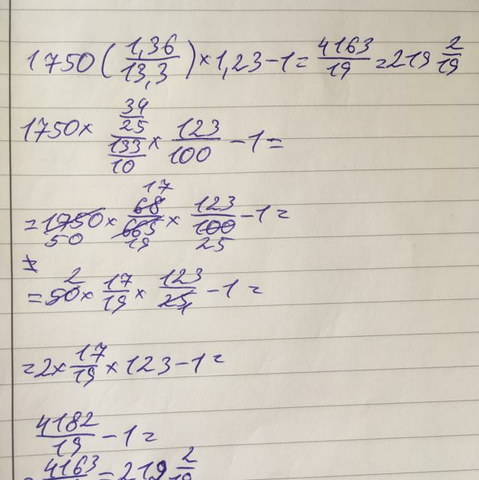 1750(1,36/13,3)×1,23-1=4163/19=219 2/19
1750× (34/25)/(133/10) × 123/100 -1=
17
=1750× 68/665 × 123/100 -1=
50 19 25
2
=50× 17/19 × 123/25 -1=
1
=2× 17/19 ×123-1=
4182/19 -1=
=4163/19=219 2/19